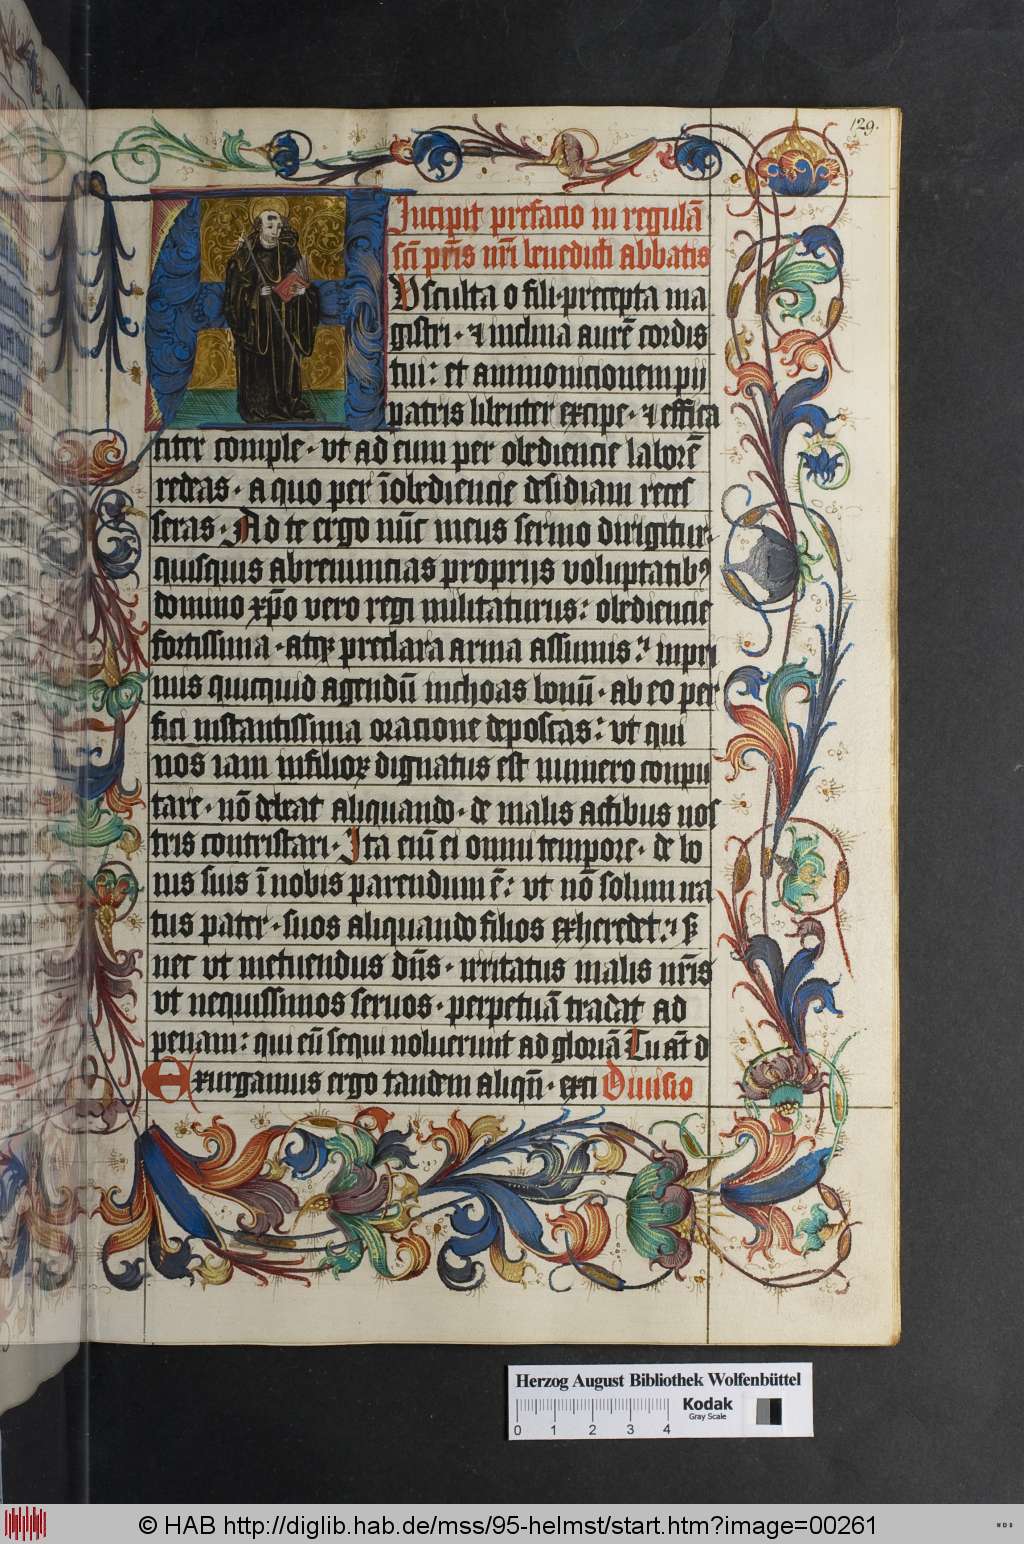 129.
Incipit prefacio in regulā
scī pr̄is nr̄i benedicti abbatis
Usculta o fili · precepta ma
gistri · ⁊ inclina aurē cordis
tui : et ammonicionem pij
patris libenter excipe · ⁊ effica
citer comple · ut ad eum per obediencie laborē
redeas · a quo per īobediencie desidiam reces
seras · Ad te ergo nūc meus sermo dirigitur ·
quisquis abrenuncias proprijs voluptatibꝰ
domino xp̄o vero regi militaturus : obediencie
fortissima · atqꝫ preclara arma assumis : inpri
mis quicquid agendū inchoas bonū · ab eo per
fici instantissima oracione deposcas : ut qui
nos iam in filioꝝ dignatus est numero conpu
tare · nō debeat aliquando · de malis actibus nos
tris contristari · Ita enī ei omni tempore · de bo
nis suis ī nobis parendum ē : ut nō solum ira
tus pater · suos aliquando filios exheredet : sꝫ
nec ut metuendus dn̄s · irritatus malis nr̄is
ut nequissimos servos · perpetuā tradat ad
penam : qui eū sequi noluerunt ad gloriā Tu aūt d
Exurgamus ergo tandem aliqn̄ · exci Divisio
Herzog August Bibliothek Wolfenbüttel
0 1 2 3 4
Kodak
Gray Scale
© HAB http://diglib.hab.de/mss/95-helmst/start.htm?image=00261